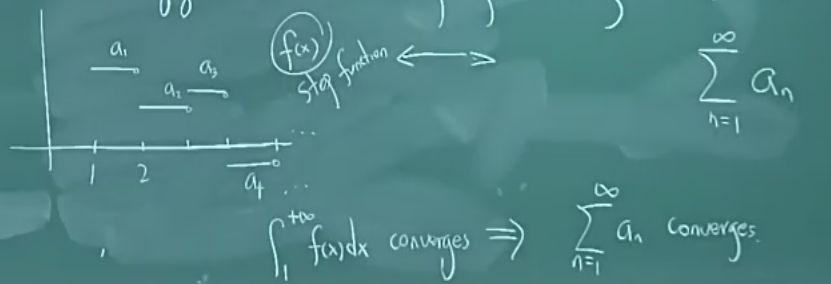 a₁ a₂ a₃ f(x) step function ⟷ ∑_{n=1}^{∞} aₙ
1 2 a₄ ... ...
∫₁^{+∞} f(x)dx converges ⇒ ∑_{n=1}^{∞} aₙ converges.